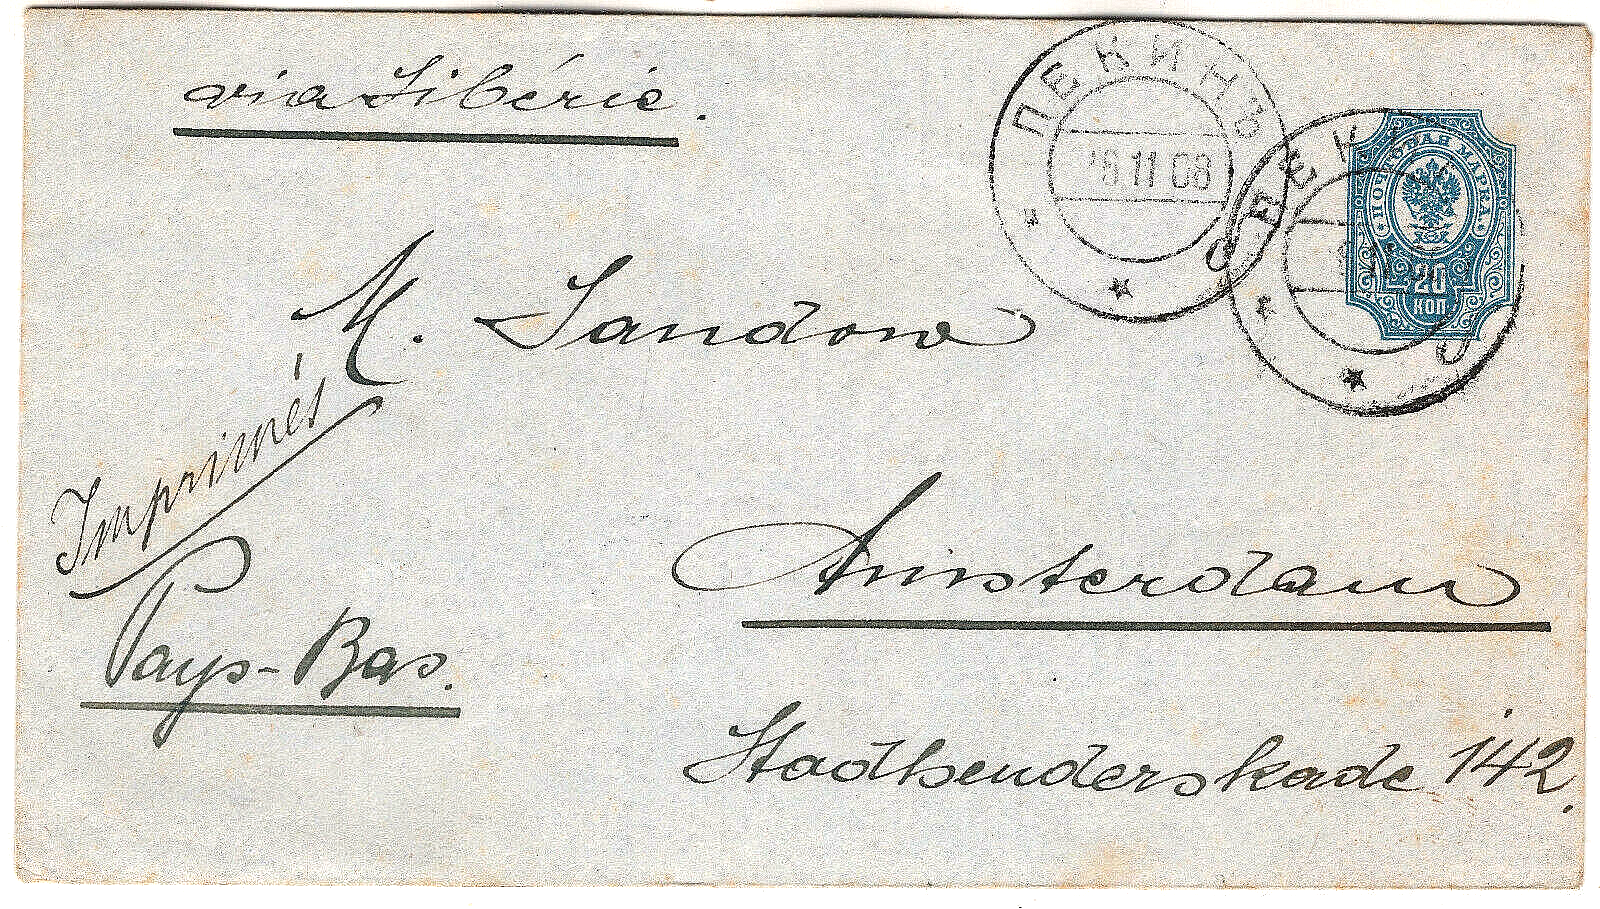 via Sibérie.
ПЕКИНЪ
8.11 08
ПЕК
ПОЧТОВАЯ МАРКА
20
КОП
M. Sandow
Imprimés
Amsterdam
Pays-Bas.
Stadhenderskade 142.